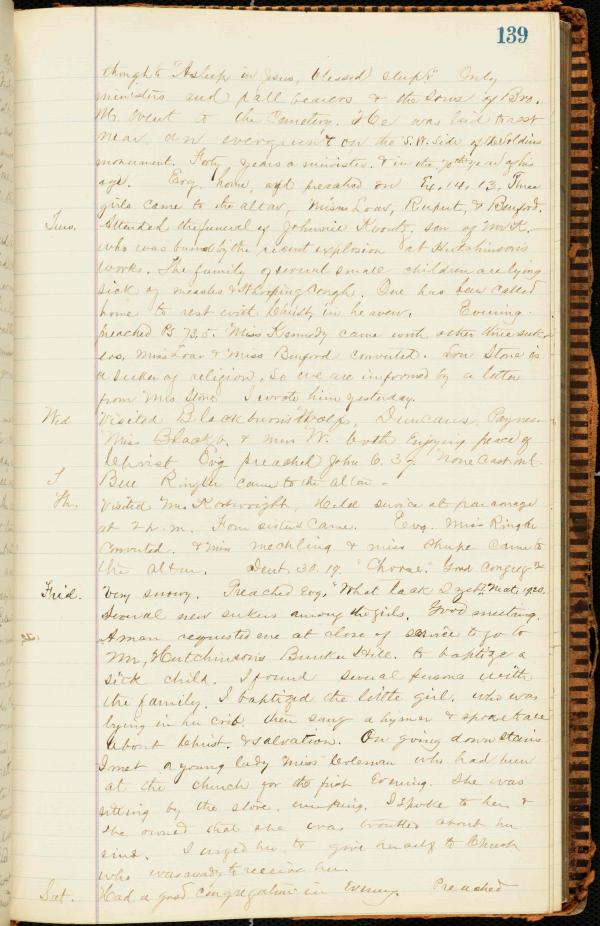 139
thought "Asleep in Jesus, blessed sleep" Only
ministers and pall bearers & the sons of Bro.
M. went to the Cemetery. He was laid to rest
near an evergreen & on the S.W. side of the Soldiers
monument. Forty years a minister. & in the 70th year of his
age. Evg. home, and preached on Ex. 14, 13. Three
girls came to the altar, Misses Loar, Rupert, & Benford.
Tues. Attended the funeral of Johnnie Kountz, son of Mr K.
who was burned by the recent explosion at Hutchinson's
works. The family of several small children are lying
sick of measles & Whooping Cough. One has been called
home to rest with Christ, in heaven. Evening
preached Ps 73, 5. Miss Kennedy came with other three seek-
ers, Miss Loar & Miss Benford converted. Lou Stone is
a seeker of religion, So we are informed by a letter
from Mrs Stone I wrote him yesterday.
Wed Visited Blackburn's Wolfs, Duncans, Paynes
Miss Black b. & Mrs W. both enjoying peace of
Christ Evg preached John 6. 37. None cast out
Bee Ringler came to the altar -
Th. Visited Mrs. Kortwright, Held service at parsonage
at 2 p.m. Four sisters came. Evg. Miss Ringler
Converted. & miss Mechling & miss Shupe came to
the altar. Deut. 30. 19. "Choose." Good congreg'n
Frid. Very snowy. Preached Evg. "What lack I yet," Mat. 19.20.
Several new seekers among the girls. Good meeting.
A man requested me at close of service to go to
Mr, Hutchinson's Bunker Hill. to baptize a
sick child. I found several persons with
the family. I baptized the little girl. who was
lying in her crib, then sang a hymn & spoke to all
about Christ. & salvation. On going down stairs
I met a young lady Miss Coleman who had been
at the church for the first Evening. She was
sitting by the stove, weeping. I spoke to her &
she owned that she was troubled about her
sins. I urged her to give herself to Christ
who was ready to receive her.
Sat. Had a good congregation in Evening. Preached